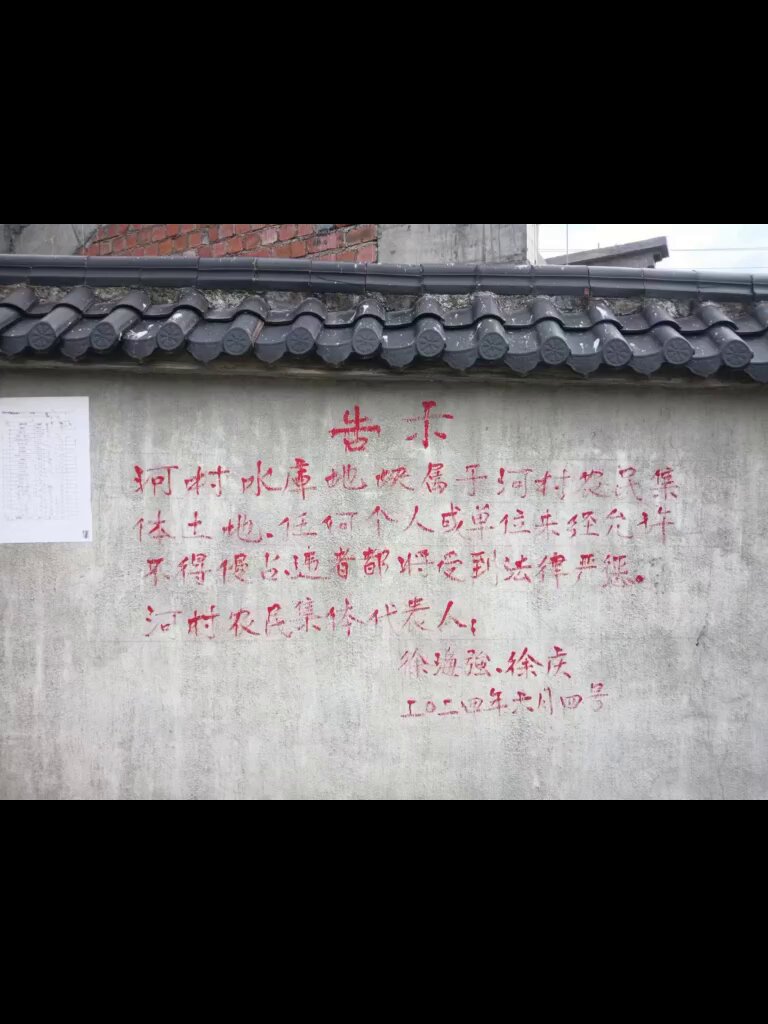 告示
河村水库地块属于河村农民集
体土地、任何个人或单位未经允许
不得侵占、违者都将受到法律严惩。
河村农民集体代表人：
徐海強、徐庆
二〇二四年六月四号